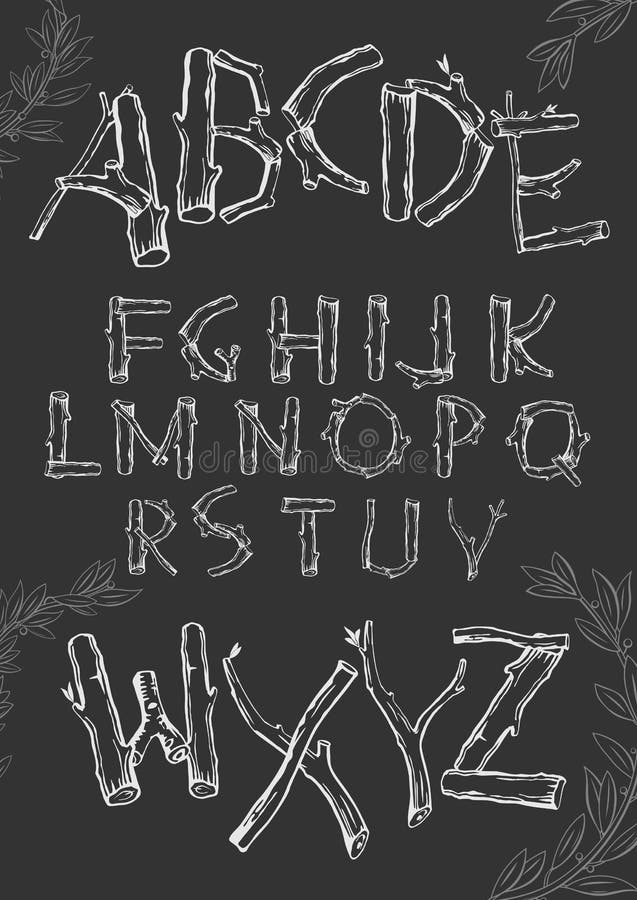 ABCDE
FGHIJK
LMNOPQ
RSTUV
WXYZ
dreamstime